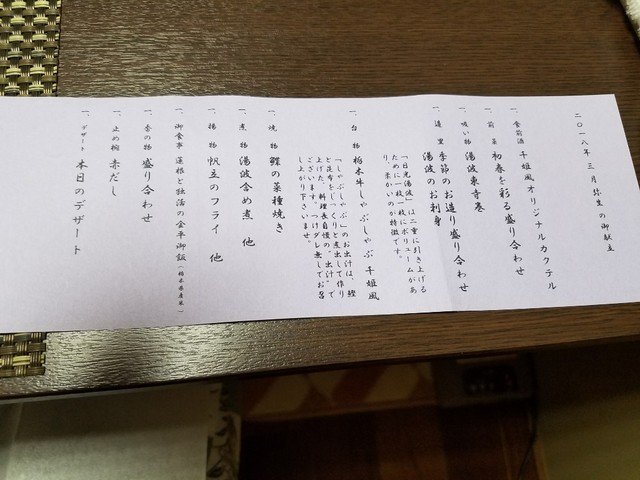 二〇一八年 三月 弥生の御献立
一、食前酒 千姫風オリジナルカクテル
一、前菜 初春を彩る盛り合わせ
一、吸い物 湯波東寺巻
一、造里 季節のお造り盛り合わせ
湯波のお刺身
「日光湯波」は二重に引き上げる
ために一枚一枚にボリュームがあ
り、柔かいのが特徴です。
一、台物 栃木牛しゃぶしゃぶ 千姫風
「しゃぶしゃぶ」のお出汁は、鰹
と昆布をじっくりと煮出して作り
上げた、料理長自慢の「出汁」で
ございます。つけダレ無しでお召
し上がり下さいませ。
一、焼物 鰹の菜種焼き
一、煮物 湯波含め煮 他
一、揚物 帆立のフライ 他
一、御食事 蓮根と独活の金平御飯(栃木県産米)
一、香の物 盛り合わせ
一、止め椀 赤だし
一、デザート 本日のデザート